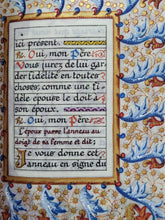 ici présent.
℟. Oui, mon Père.
Vous jurez de lui gar
der fidélité en toutes
choses, comme une fi
dèle épouse le doit à
son époux.
℟. Oui, mon Père.
L'époux passe l'anneau au
doigt de sa femme et dit:
Je vous donne cet
anneau en signe du